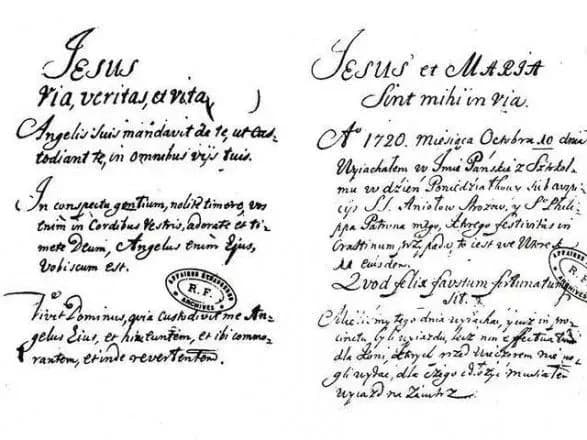 Jesus
Via, veritas, et vita
Angelis suis mandavit de te, ut Cus-
todiant te, in omnibus vijs tuis.
In conspectu gentium, nolite timere, vos
enim in Cordibus Vestris, adorate et ti-
mete Deum, Angelus enim Ejus,
Vobiscum est.
Vivit Dominus, quia Custodivit me An-
gelus Ejus, et hinc euntem, et ibi commo-
rantem, et inde revertentem.
AFFAIRES ETRANGERES
R.F.
ARCHIVES
JESUS et MARIA
Sint mihi in via.
Aº 1720. Miesiąca Octobra 10 dnia
Wyiachałem w Imie Pańskie z
mu w dzień Poniedziałkowy sub auspi-
cijs S.S. Aniołow Strozow, y Sº Philip-
ppa Patrona mego, ktorego festivitas in
Crastinum, przypada to iest we Wtorek
11 eiusdem.
Quod felix faustum fortunatum
sit.
my tego dnia wyiachac, y iusz in pro-
cinctu byli wyiazdu, lecz non effectua
dla Zoni, ktorych przed Wieczorem nie mo-
gli wydac, dla czego odłozyc musiałem
wyiazd na Zaiutrz.
R.F.